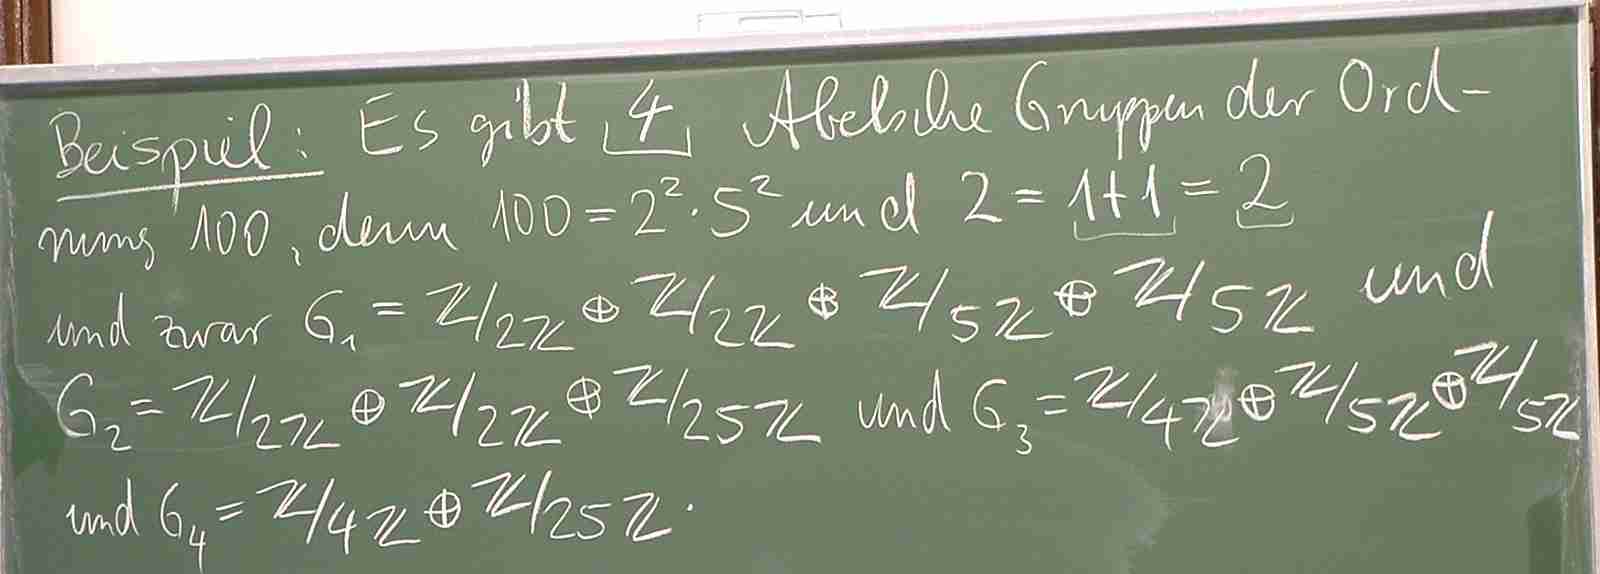 Beispiel: Es gibt 4 Abelsche Gruppen der Ord-
nung 100, denn 100 = 2²·5² und 2 = 1+1 = 2
und zwar G₁ = ℤ/2ℤ ⊕ ℤ/2ℤ ⊕ ℤ/5ℤ ⊕ ℤ/5ℤ und
G₂ = ℤ/2ℤ ⊕ ℤ/2ℤ ⊕ ℤ/25ℤ und G₃ = ℤ/4ℤ ⊕ ℤ/5ℤ ⊕ ℤ/5ℤ
und G₄ = ℤ/4ℤ ⊕ ℤ/25ℤ.